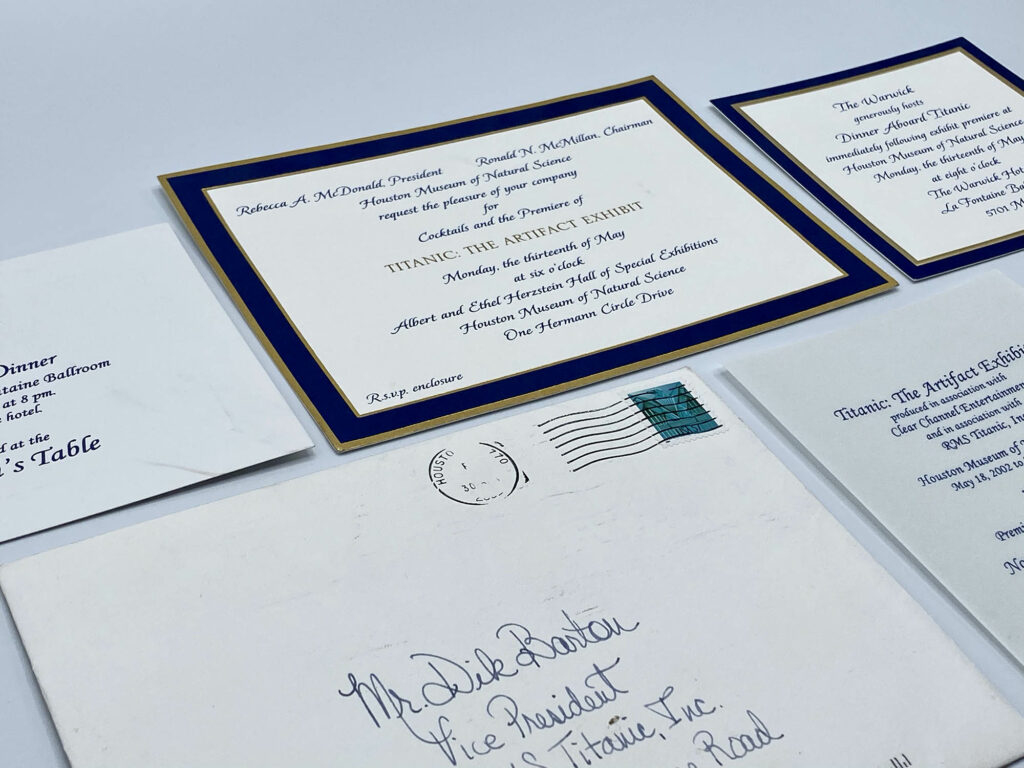 Rebecca A. McDonald, President
Ronald N. McMillan, Chairman
Houston Museum of Natural Science
request the pleasure of your company
for
Cocktails and the Premiere of
TITANIC: THE ARTIFACT EXHIBIT
Monday, the thirteenth of May
at six o'clock
Albert and Ethel Herzstein Hall of Special Exhibitions
Houston Museum of Natural Science
One Hermann Circle Drive
R.s.v.p. enclosure
The Warwick
generously hosts
Dinner Aboard Titanic
immediately following exhibit premiere at
Houston Museum of Natural Science
Monday, the thirteenth of May
at eight o'clock
The Warwick Hot
La Fontaine Ba
5701 M
Dinner
taine Ballroom
at 8 pm.
hotel.
d at the
's Table
Titanic: The Artifact Exhibi
produced in association with
Clear Channel Entertainmen
and in association with
RMS Titanic, In
Houston Museum of
May 18, 2002 to
Premi
No
HOUSTO
770
30
Mr. Dik Barton
Vice President
S Titanic, Inc.
Road